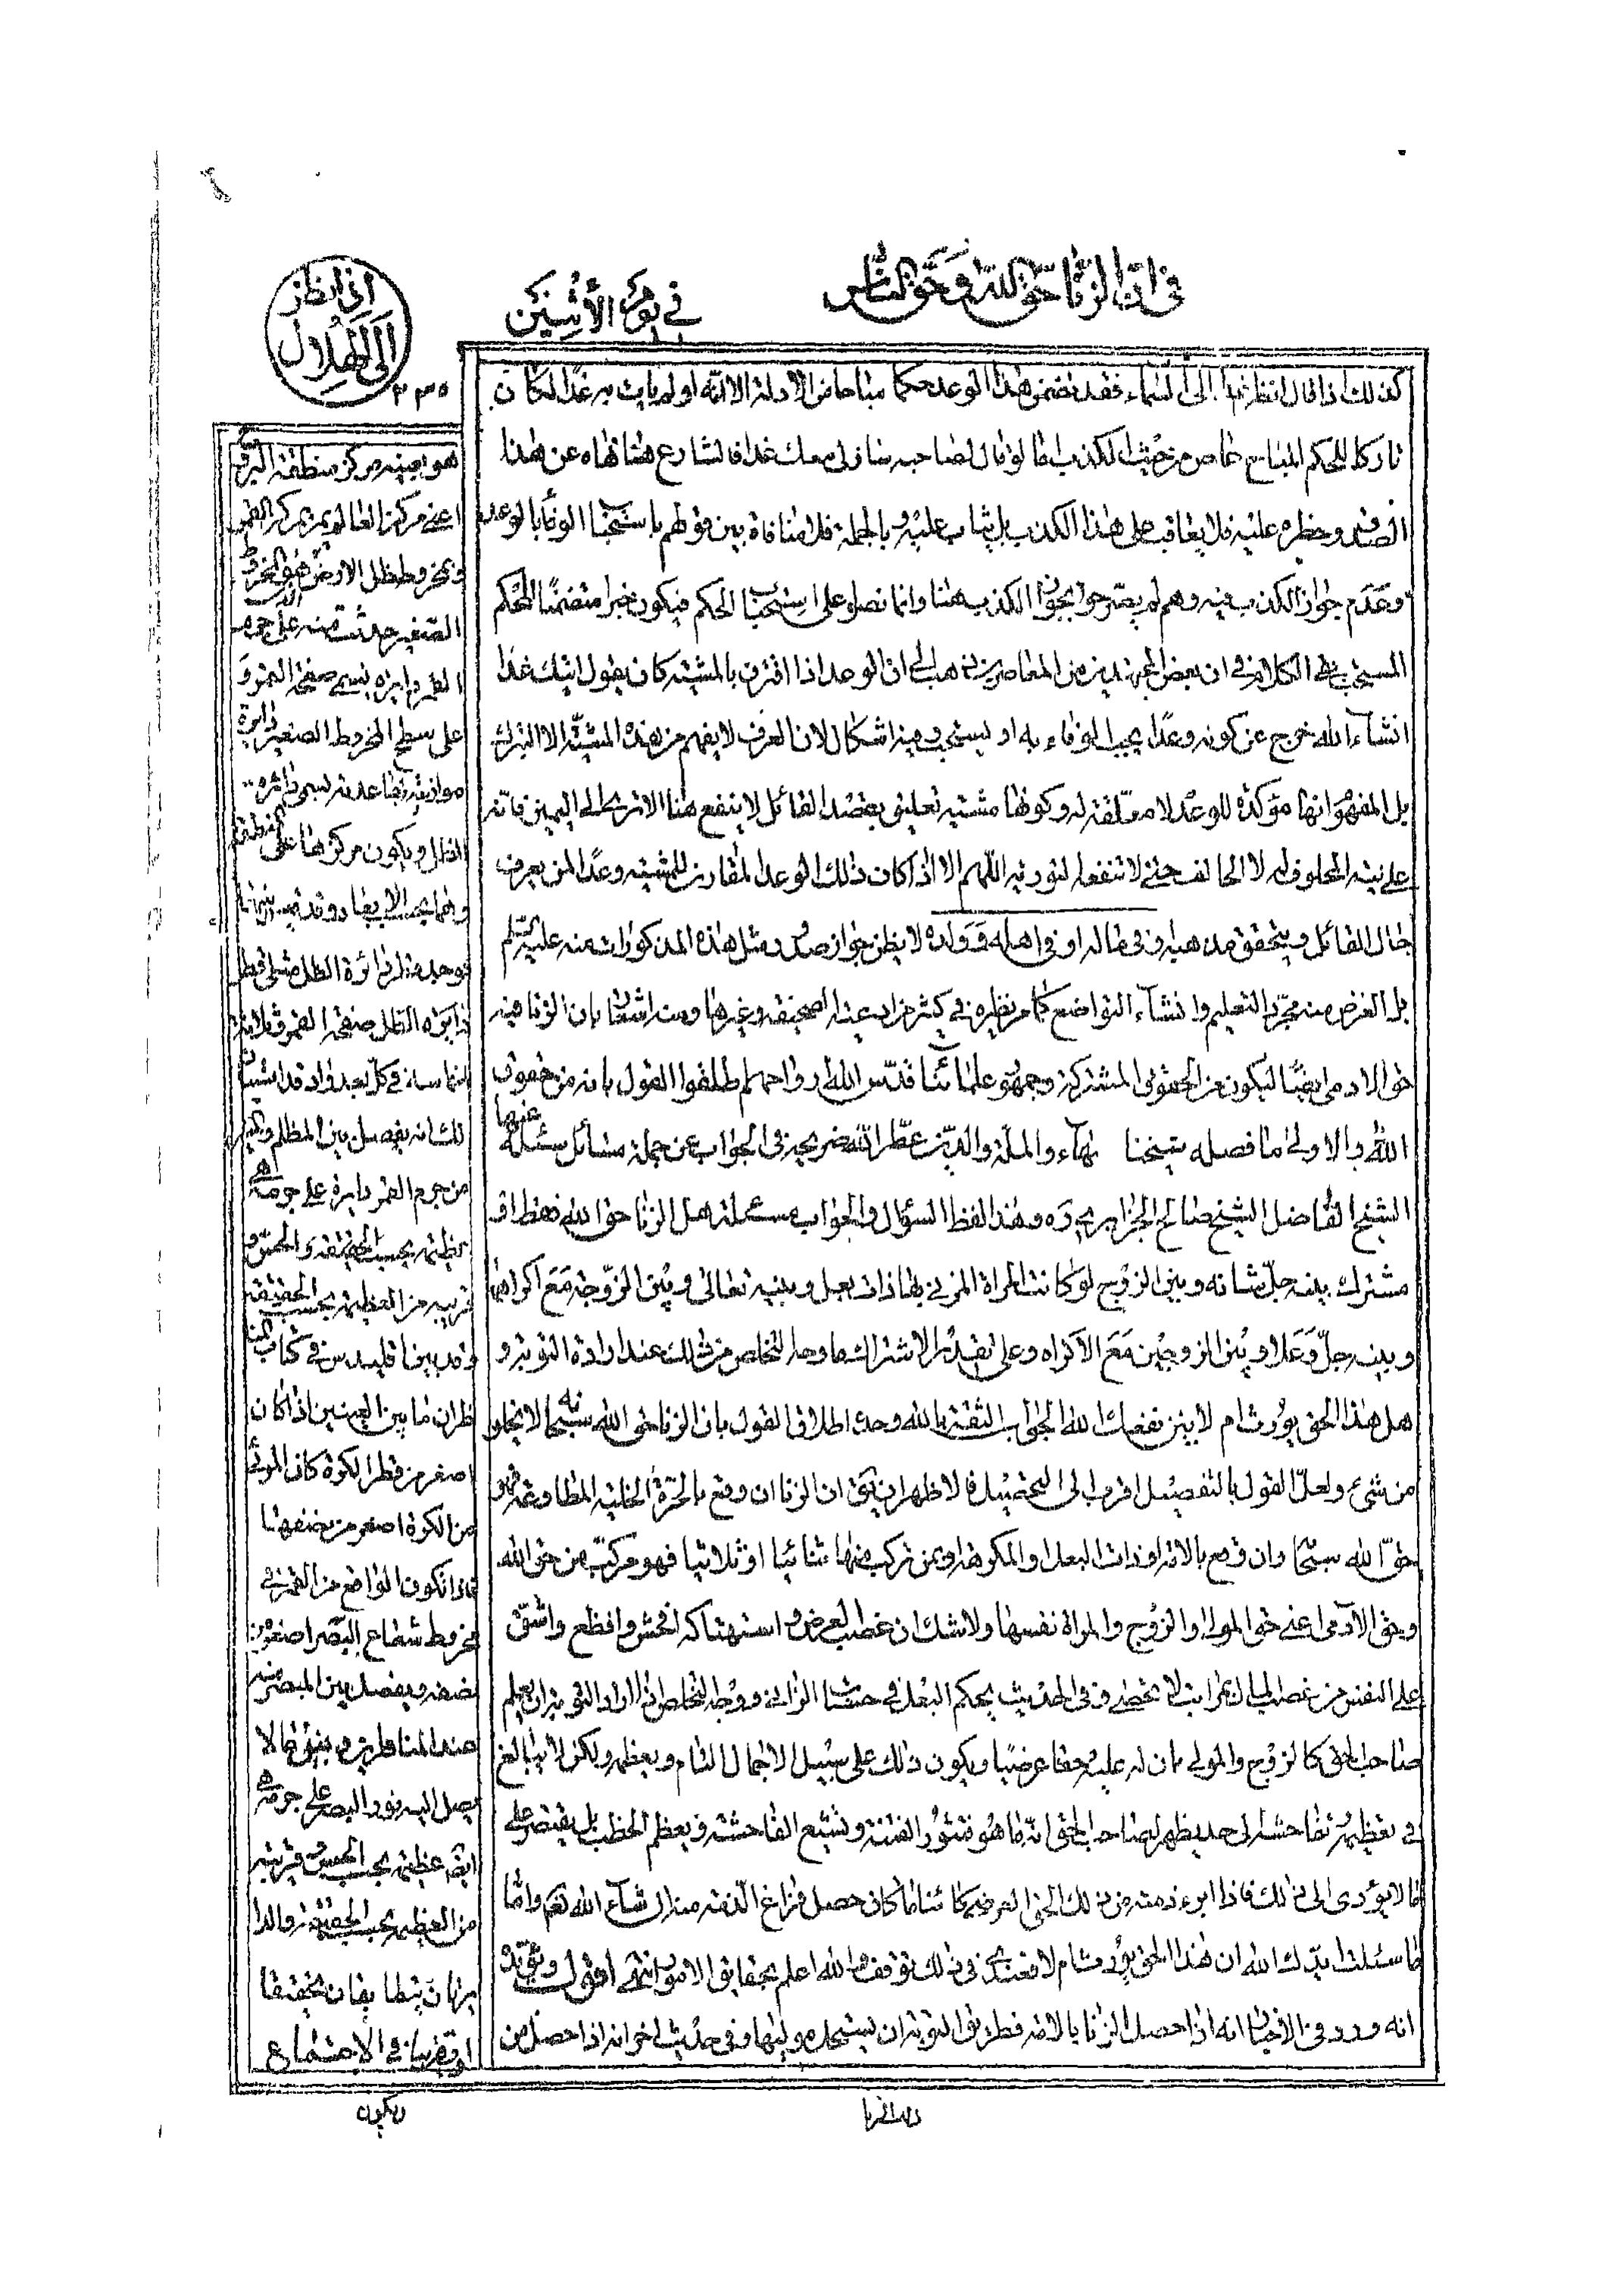 في ان الزنا حق الله وحق الناس
في يوم الأثنين
اذا نظر
الى الهلال
٢٣٥
كذلك اذا قال انظر غدا الى السماء فقد تضمن هذا الوعد حكما مباحا من الادلة الا انه لو لم يات به غدا لكان
تاركا للحكم المباح خاص من حيث الكذب اما لو قال لصاحبه سازني معك غدا فالشارع هنا نهاه عن هذا
وحظره عليه فلا يعاقب على هذا الكذب بل يثاب عليه وبالجملة فلا منافاة بين قولهم باستحباب الوفاء بالوعد
وعدم جواز الكذب فيه وهم لم يصرحوا بجواز الكذب هنا وانما نصوا على استحباب الحكم فيكون خبرا متضمنا للحكم
المستحب بقي الكلام في ان بعض المجتهدين من المعاصرين ذهب الى ان الوعد اذا اقترن بالمشية كان يقول اتيك غدا
انشاء الله خرج عن كونه وعدا يجب الوفاء به او يستحب وفيه اشكال لان العرف لا يفهم من هذه المشية الا التبرك
بل المفهوم انها مؤكدة للوعد لا معلقة له وكونها مشية تعليق بقصد القائل لا ينفع هنا الا ترى الى اليمين فانه
على نية المحلوف له لا الحالف حتى لا تنفعه لتورية اللهم الا اذا كان ذلك الوعد المقارن للمشية وعدا لمن يعرف
حال القائل ويتحقق مذهبه وفي ماله او في اهله وولده لا يظن جواز صدور مثل هذه المذكورات منه عليه السلم
بل الغرض منه مجرد التعليم وانشاء التواضع كما مر نظيره في كثير من ادعية الصحيفة وغيرها ومنه اشعار بان الزنا فيه
حق الادمي ايضا ليكون من الحقوق المشتركة وجمهور علمائنا قدس الله ارواحهم اطلقوا القول بانه من حقوق
الله والاولى ما فصله شيخنا بهاء والملة والدين عطر الله ضريحه في الجواب عن جملة مسائل سئله عنها
الشيخ الفاضل الشيخ صالح الجزايري ره وهذا لفظ السؤال والجواب مسئلة هل الزنا حق الله فقط او
مشترك بينه جل شانه وبين الزوج لو كانت المراة المزني بها ذات بعل وبينه تعالى وبين الزوجة مع اكراهها
وبينه جل وعلا وبين الزوجين مع الاكراه وعلى تقدير الاشتراك ما وجه التخلص من ذلك عند ارادة التوبة و
هل هذا الحق يورث ام لا بين نفعك الله الجواب الثقة بالله وحده اطلاق القول بان الزنا حق الله سبحانه لا يخلو
من شيء ولعل القول بالتفصيل اقرب الى التحصيل فالاظهر ان يق ان الزنا ان وقع بالحرة الخلية المطاوعة فهو
حق الله سبحانه وان وقع بالامة او ذات البعل او المكرهة او بمن تركب منها ثنائيا او ثلاثيا فهو مركب من حق الله
وحق الآدمي اعني حق المولى او الزوج والمراة نفسها ولا شك ان غصب العرض واستهتاكه افحش وافظع واشق
على النفس من غصب المال بمراتب لا تحصى وفي الحديث يحكم البعل في حسنات الزاني ووجه التخلص اذا اراد التوبة ان يعلم
صاحب الحق كالزوج والمولى بان له عليه حقا عرضيا ويكون ذلك على سبيل الاجمال التام ويعظمه ولكن لا يبالغ
في تعظيمه تفاحشا الى حد يظهر لصاحب الحق انه ما هو فتثور الفتنة وتشيع الفاحشة ويعظم الخطب بل يقتصر على
ما لا يؤدي الى ذلك فاذا ابرء ذمته من ذلك الحق العرضي كائنا ما كان حصل فراغ الذمة منه انشاء الله تعم واما
ما سئلت ايدك الله ان هذا الحق يورث ام لا فعندي في ذلك توقف والله اعلم بحقايق الامور انتهى اقول ويؤيده
انه ورد في الاخبار انه اذا حصل الزنا بالامة فطريق التوبة ان يستحل موليها وفي حديث اخر انه اذا حصل من
هو بعينه مركز منطقة البروج
اعني مركز العالم يمر بمركز القمر
ومخروط ظل الارض
على جرم
القمر دايره يسمى صفحة القمر و
على سطح المخروط الصغير دايرة
موازية لقاعدته يسمى دائره
الظل ويكون مركزها على
وجد قطر دائرة الظل مثلي قطر
دايره الظل صفحة القمر
في كل بعد واذ قد
لك انه يفصل بين المظلم و
من جرم القمر دايرة على جرمه
عظيمة بحسب الحقيقة والحس و
قريبه من العظيمة بحسب الحقيقة
وقد بين اقليدس في كتاب
ظر ان ما بين العينين اذا كان
اصغر من قطر الكرة كان المرئي
من الكرة اصغر من نصفها
فاذا يكون الواقع من القمر في
مخروط شعاع البصر اصغر من
نصفه ويفصل بين المبصر منه
عند الناظر وبين ما لا
يصل اليه نور البصر على جرمه
ايضا عظيمة بحسب الحس وقريبة
من العظيمة بحسب الحقيقة والدا
يرتان يتطابقان تحقيقا
او تقريبا في الاجتماع
ويكون